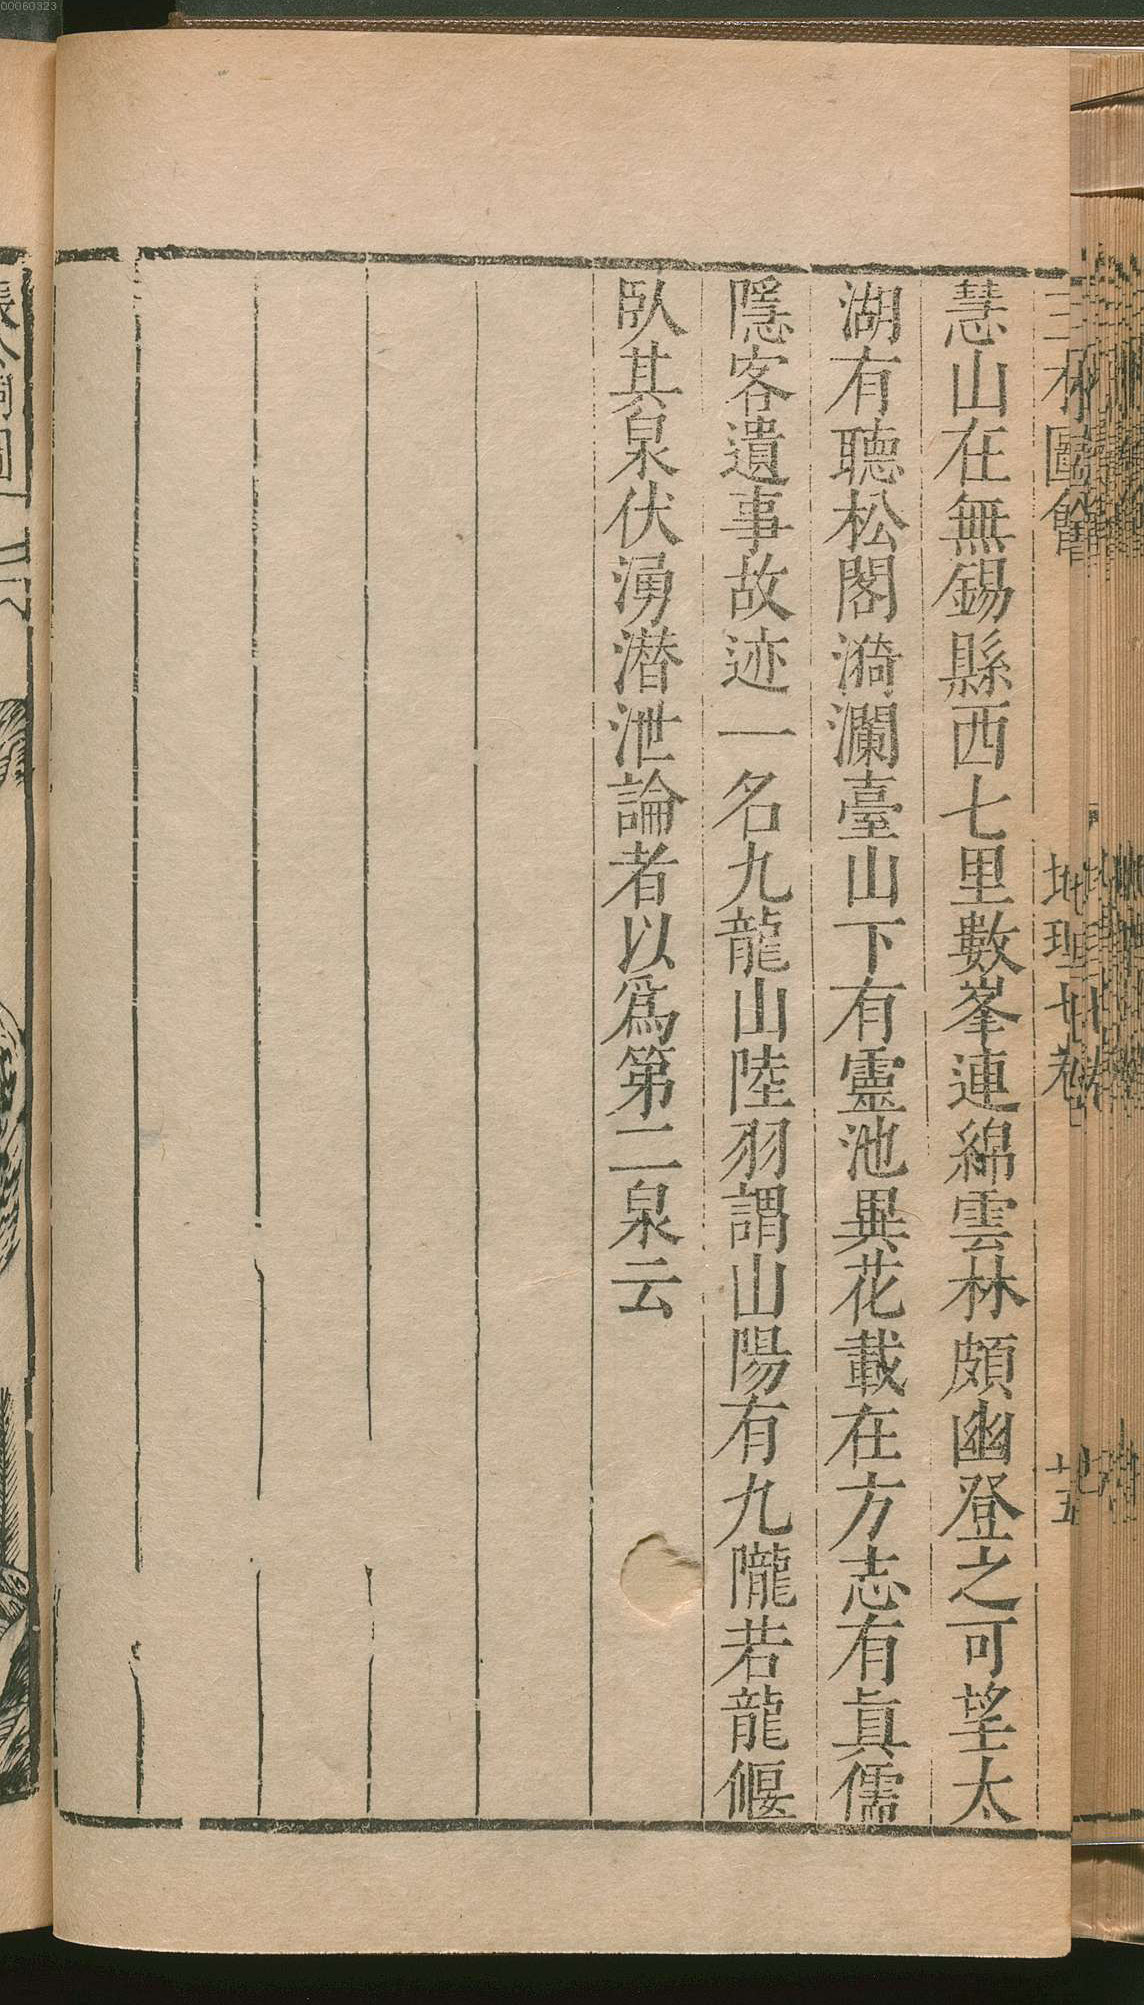 00060323
三才圖會
地理七卷
廿五
慧山在無錫縣西七里數峯連綿雲林頗幽登之可望太
湖有聽松閣漪瀾臺山下有靈池異花載在方志有眞儒
隱客遺事故迹一名九龍山陸羽謂山陽有九隴若龍偃
臥其泉伏湧潛泄論者以爲第二泉云